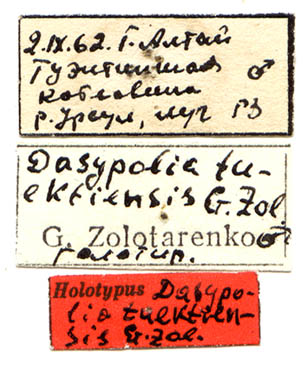 2.IX.62. Г. Алтай
Туэктинская ♂
котловина
р. Урсул, луг ГЗ
Dasypolia tu-
ektiensis G. Zol.
G. Zolotarenko ♂
голотип.
Holotypus Dasypo-
lia tuektien-
sis G. Zol.